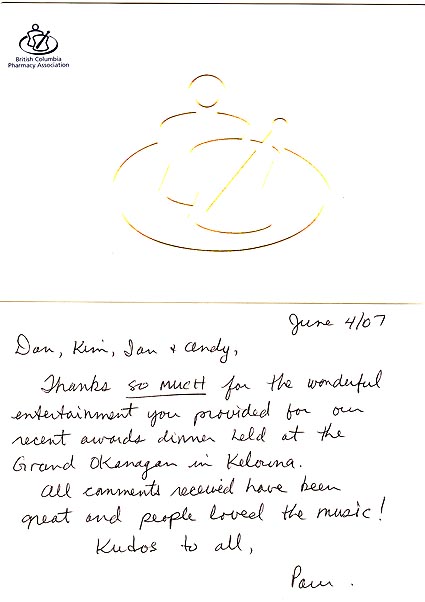 British Columbia
Pharmacy Association
June 4/07
Dan, Kim, Ian + Andy,
Thanks so much for the wonderful
entertainment you provided for our
recent awards dinner held at the
Grand Okanagan in Kelowna.
All comments received have been
great and people loved the music!
Kudos to all,
Pam.